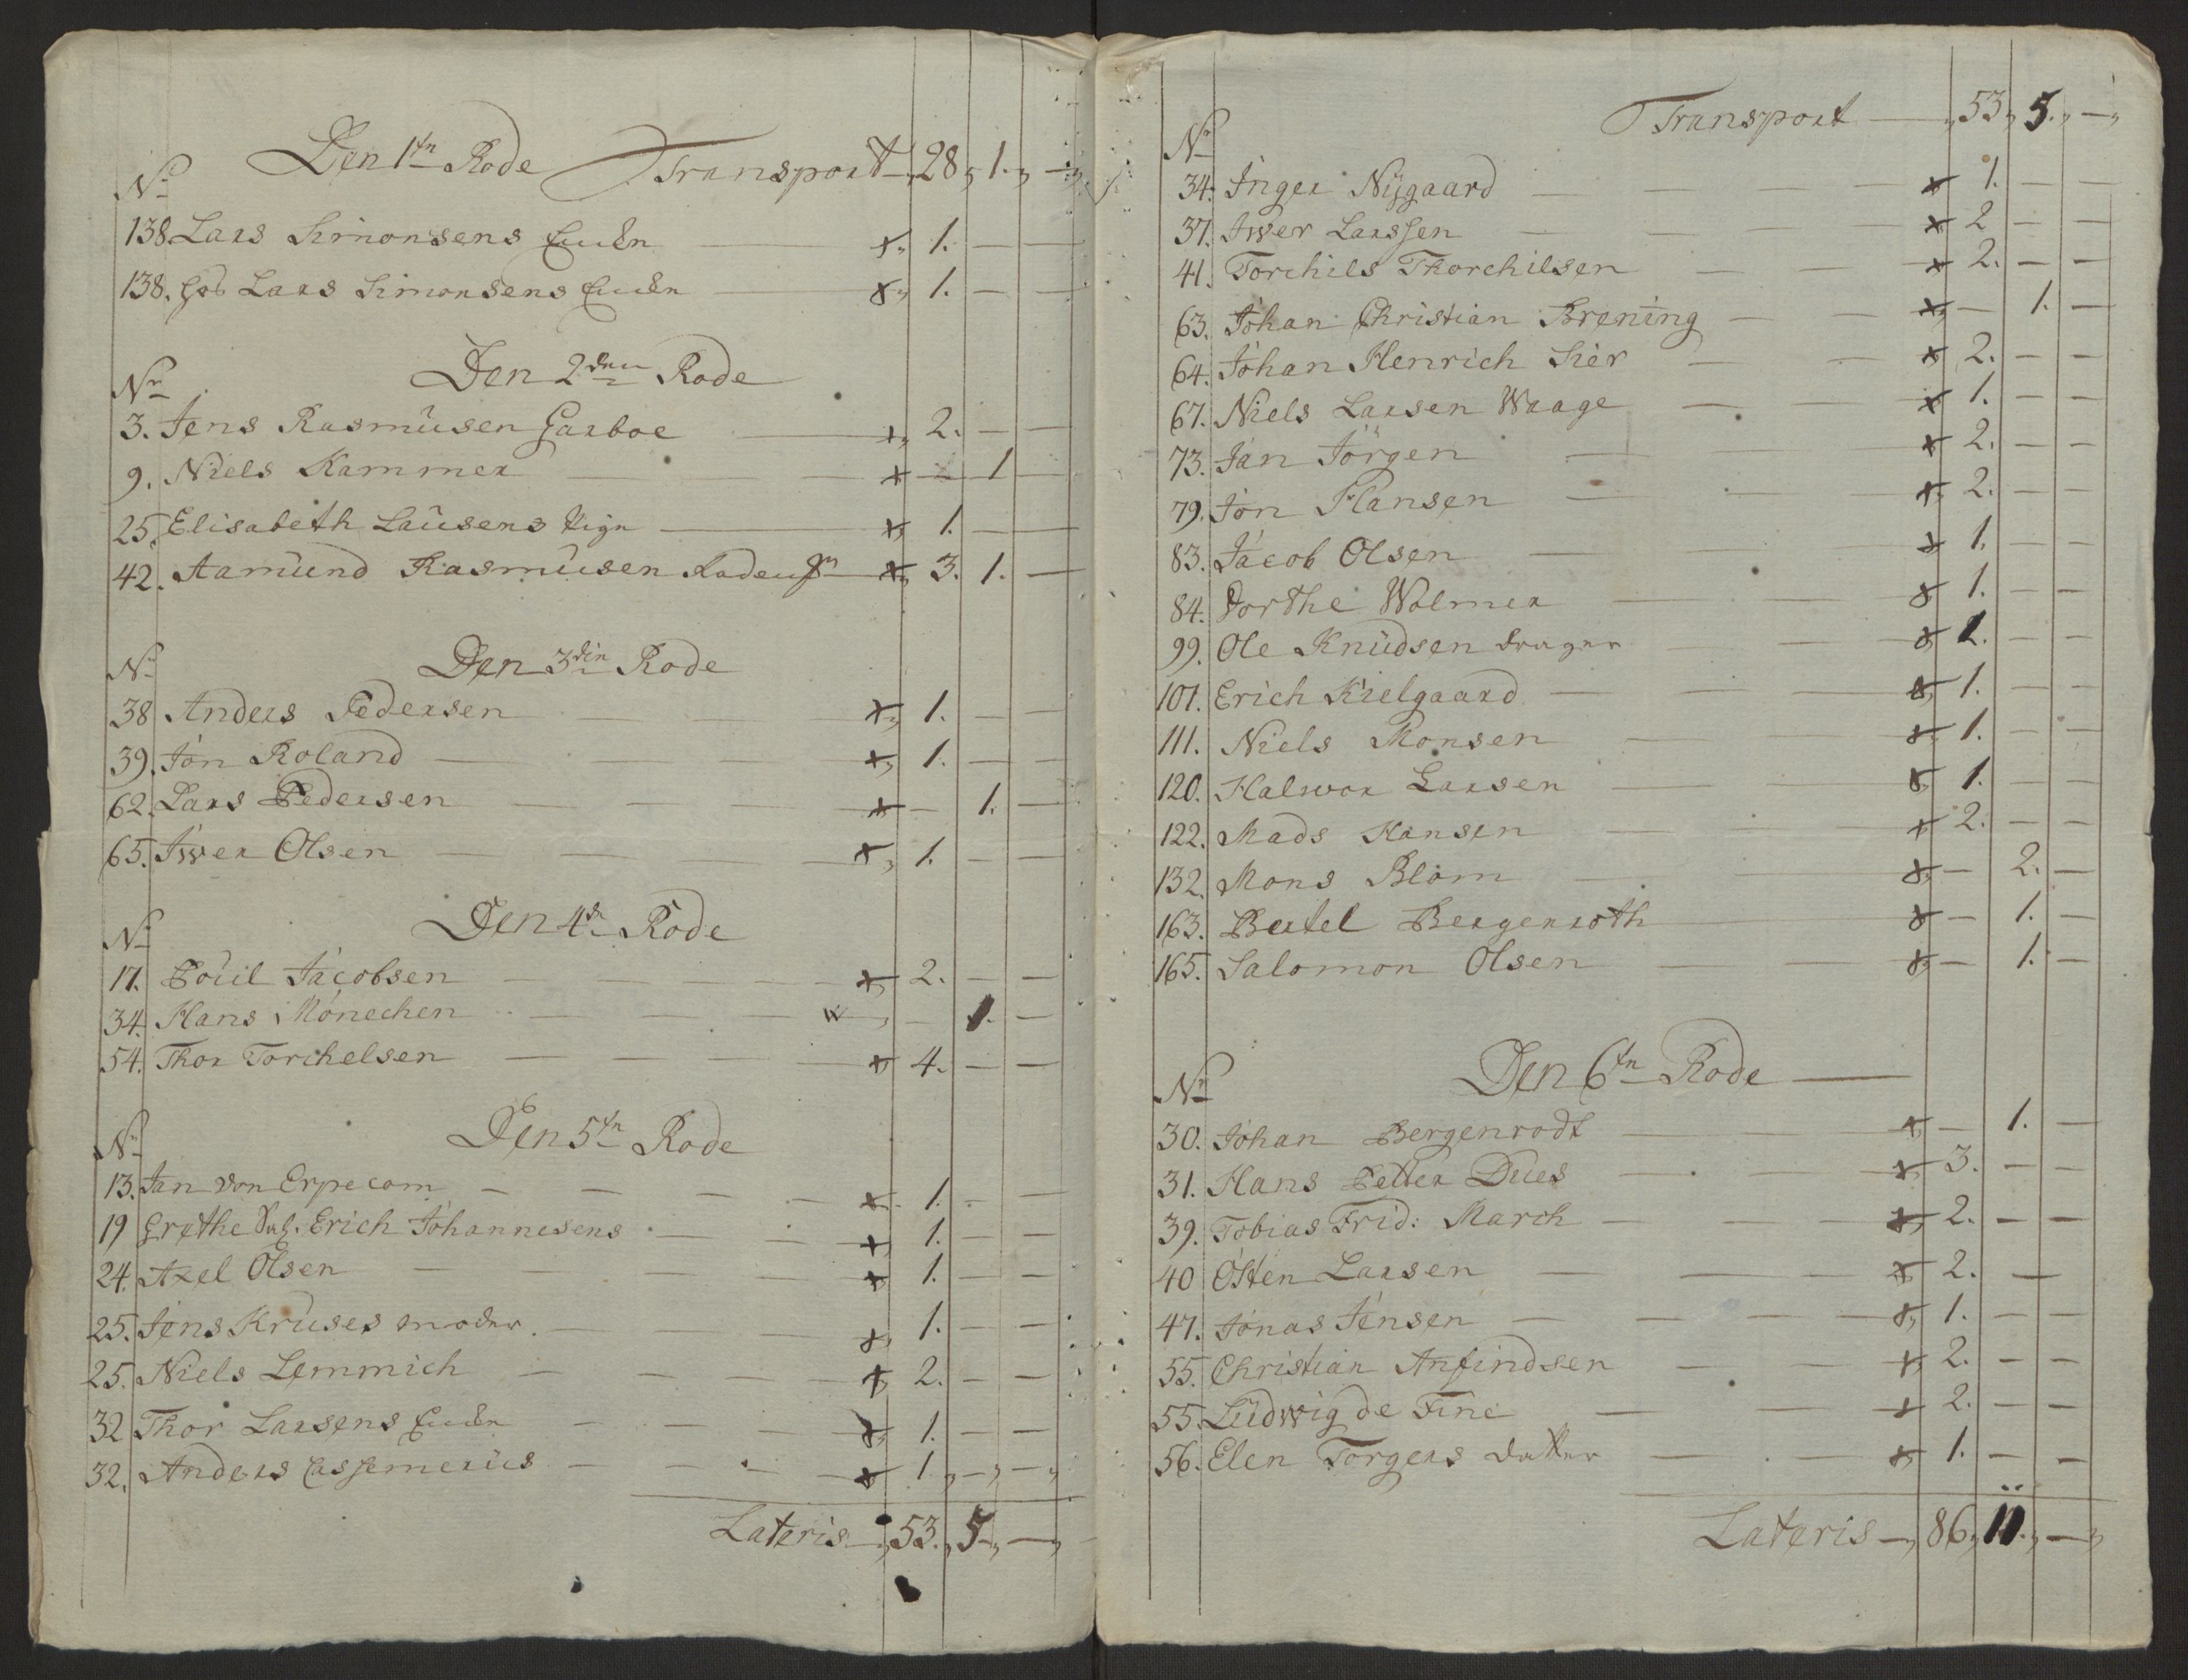 Den 1tn Rode Transport 28, 1. —
No
138. Lars Simonsens Encke x 1. — —
138. Lars Simonsens Encke x 1. — —
Den 2den Rode
Nr
3. Jens Rasmüsen Garboe x 2. — —
9. Niels Kammer x — 1 —
25. Elisabeth Laüsens Pige x 1. — —
42. Aamünd Rasmüsen x 3. 1. —
Den 3din Rode
No
38 Anders Pedersen x 1. — —
39. Jon Roland x 1. — —
62. Lars Pedersen x — 1. —
65. Jwer Olsen x 1. — —
Den 4de Rode
No
17. Poüil Jacobsen x 2. — —
34. Hans Mönechen — 1. —
54. Thor Torchelsen x 4. — —
Den 5tn Rode
No
13. Jan von Erpecom x 1. — —
19 Grethe Sal. Erich Johannesens x 1. — —
24. Axel Olsen x 1. — —
25. Jens Krüses moder x 1. — —
25. Niels Lemmich x 2. — —
32 Thor Larsens Encke x 1. — —
32. Anders Cassemerüs x 1, —, —,
Lateris —, 53., 5 —, —,
Transport — 53, 5., —,
No
34. Inger Nÿgaard x 1. — —
37. Jwer Larssen x 2 — —
41. Torchils Thorchilsen x 2. — —
63. Johan Christian Brening x — 1. —
64. Johan Henrich Sier x 2. — —
67. Niels Larsen Waage x 1. — —
73. Jan Jörgen x 2. — —
79. Jon Hansen x 2. — —
83. Jacob Olsen x 1. — —
84. Dorthe Wolmer x 1. — —
99. Ole Knüdsen drager x 1. — —
101. Erich Kielgaard x 1. — —
111. Niels Monsen x 1. — —
120. Halwor Larsen x 1. — —
122. Mads Hansen x 2. — —
132. Mons Blom x — 2. —
163. Bertel Bergenroth x — 1. —
165. Salomon Olsen x — 1. —
Den 6tn Rode
No
30. Johan Bergenrodt x — 1. —
31. Hans Petter Dües x 3. — —
39. Tobias Frid: March x 2. — —
40 Östen Larsen x 2. —
47. Jonas Jensen x 1. — —
55. Christian Anfindsen x 2. — —
55. Lüdwig de Fine x 2. — —
56. Elen Torgers datter x 1. — —
Lateris —, 86, 11., —,